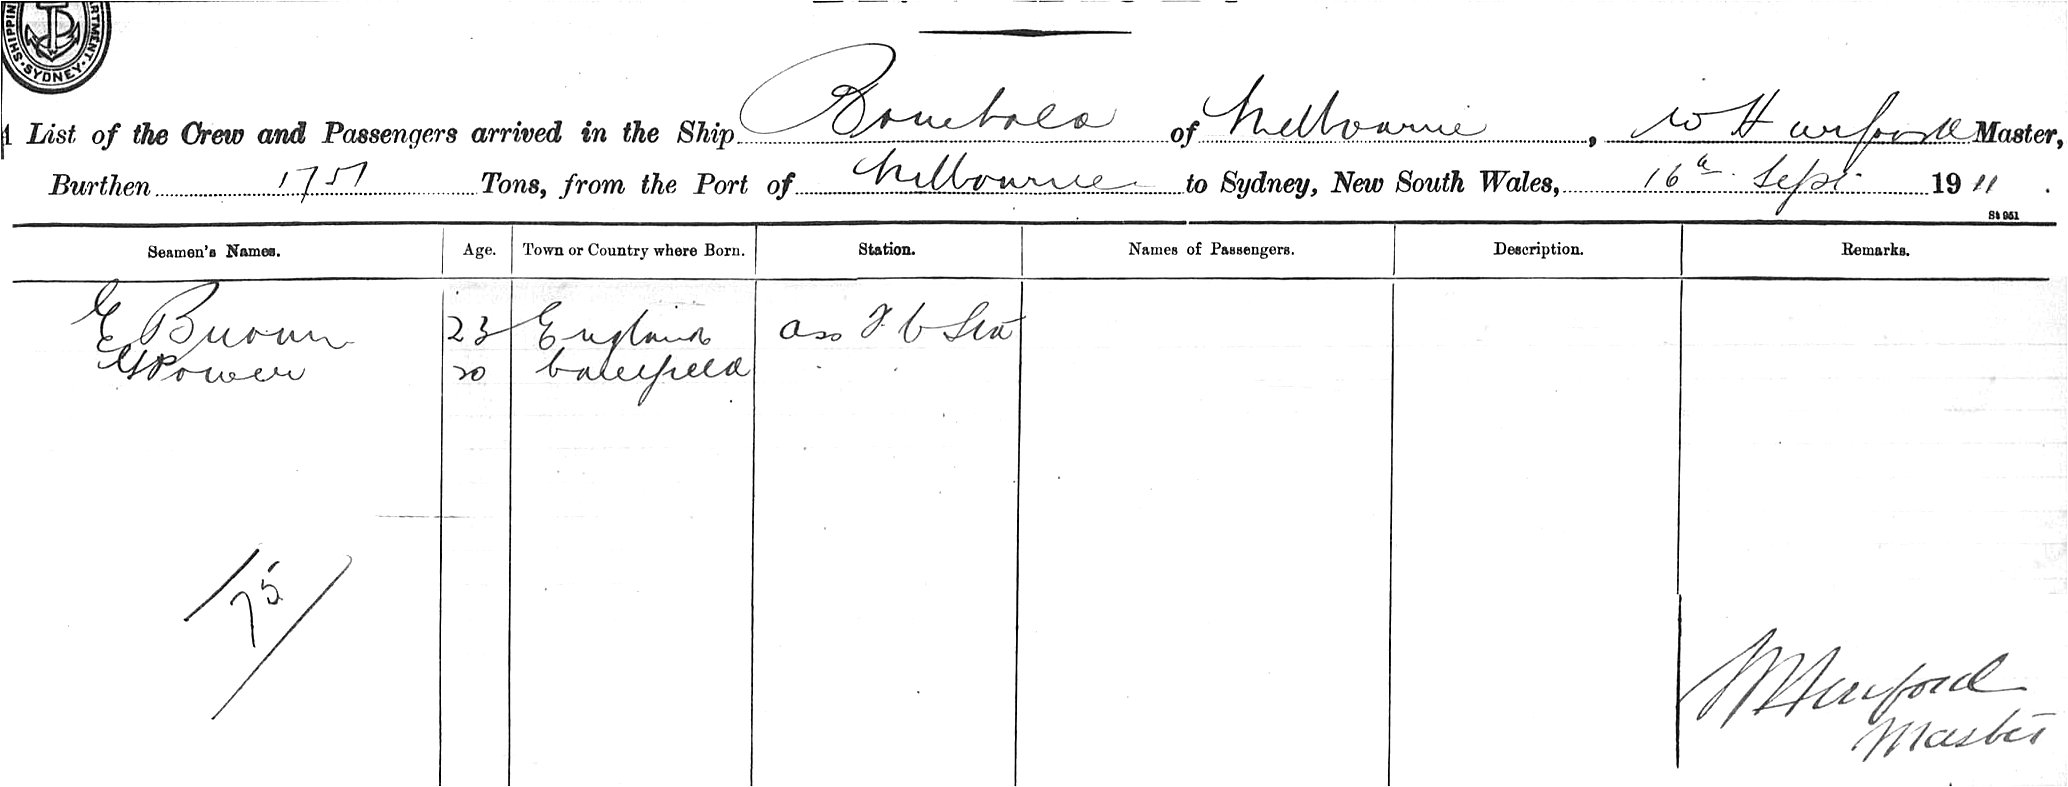 SHIPPIN
RTMENT
SYDNEY
List of the Crew and Passengers arrived in the Ship Bombala of Melbourne, W Hurford Master,
Burthen 1751 Tons, from the Port of Melbourne to Sydney, New South Wales, 16th Sept 1911.
St 951
Seamen's Names. Age. Town or Country where Born. Station. Names of Passengers. Description. Remarks.
E Brown 23 England ass F C Stu
Power 20 Caulfield
75
W Hurford
Master